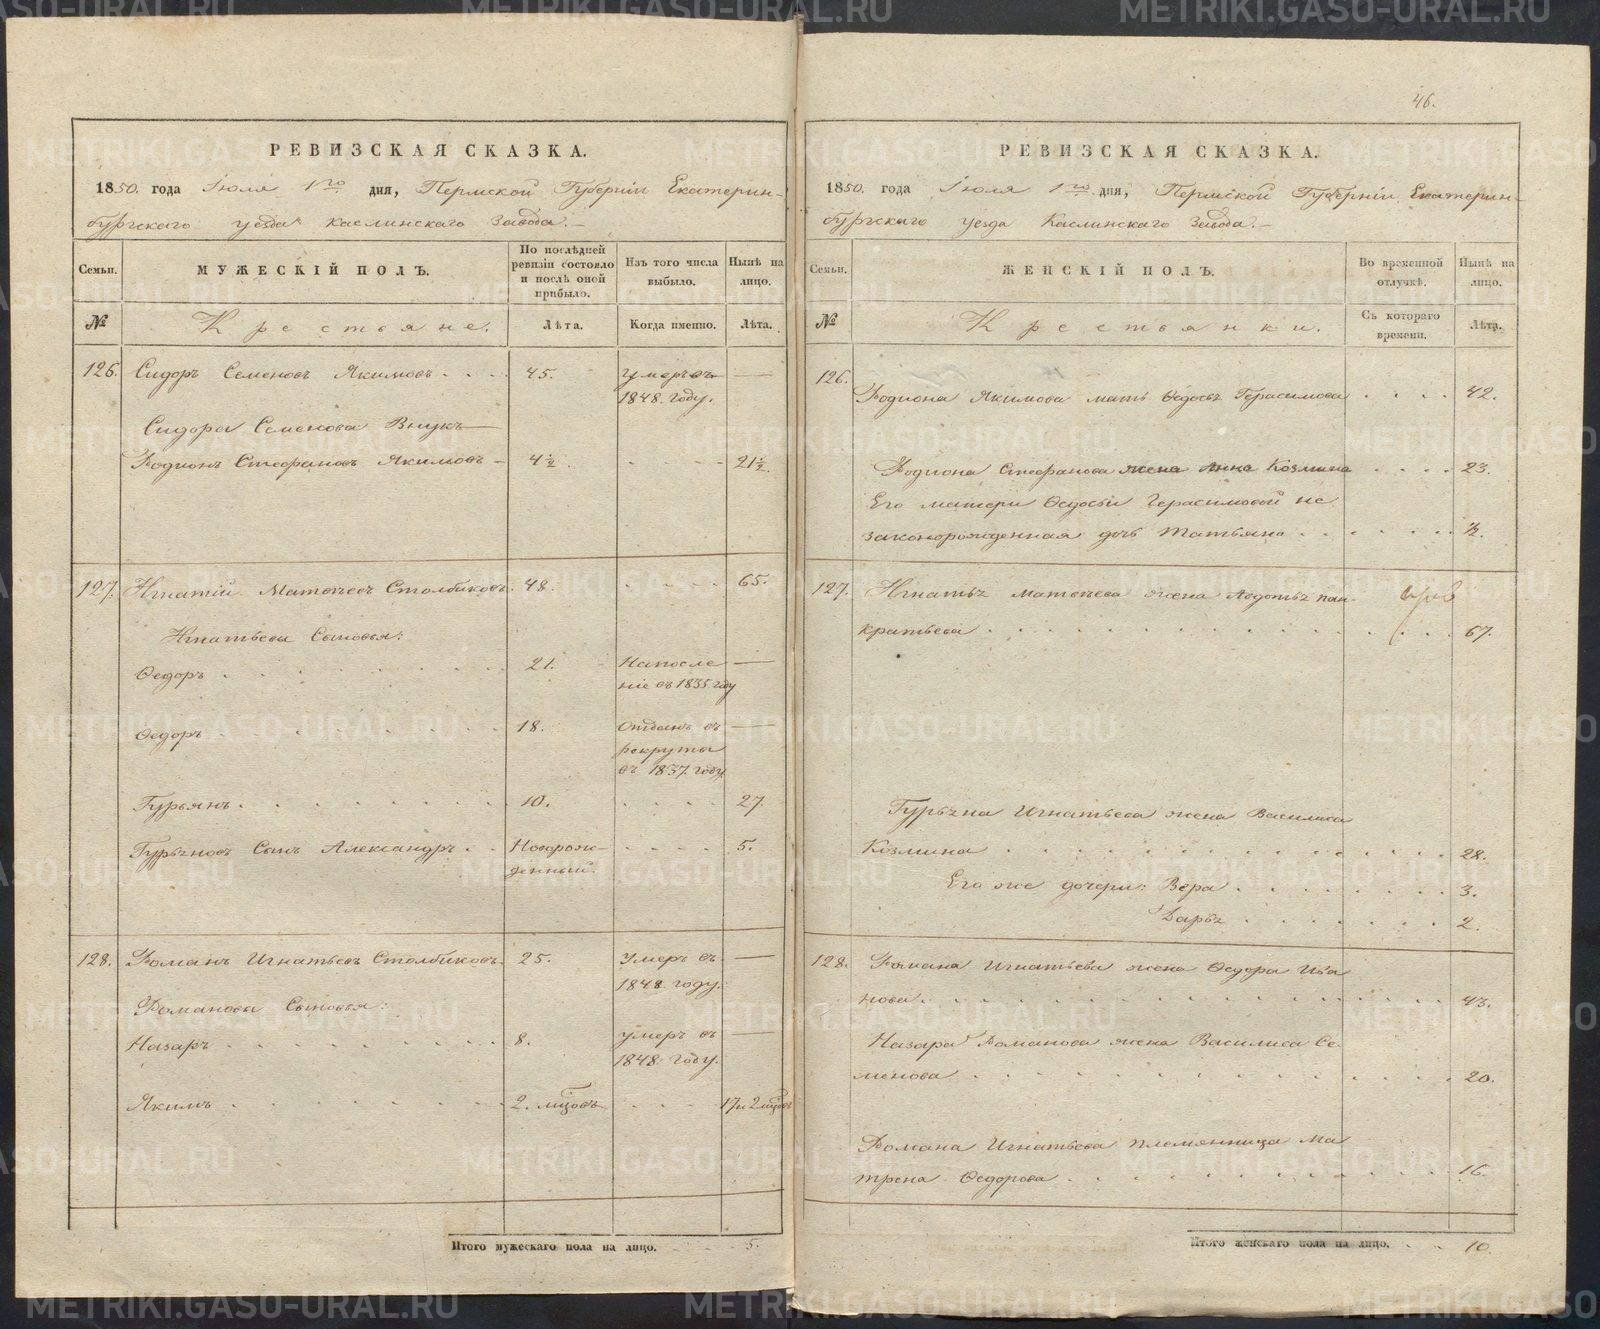 РЕВИЗСКАЯ СКАЗКА.
1850. года Іюля 1го дня, Пермской Губерніи Екатерин-
бургскаго уезда Каслинскаго Завода.
Семьи.
МУЖЕСКІЙ ПОЛЪ.
По послѣдней ревизіи состояло и послѣ оной прибыло.
Изъ того числа выбыло.
Нынѣ на лицо.
№
Крестьяне.
Лѣта.
Когда именно.
Лѣта.
126. Сидоръ Семеновъ Якимовъ . . . 45. Умеръ въ —
1848. году.
Сидора Семенова Внукъ —
Родионъ Стефановъ Якимовъ - 4½ . . . . 21½.
127. Игнатій Матвѣевъ Столбиковъ. 48. . . . . 65.
Игнатьевы Сыновья:
Ѳедоръ . . . . . . . 21. На поселе —
ніе въ 1835. году
Ѳедоръ . . . . . . . 18. Отданъ въ —
рекруты
въ 1837. году.
Гурьянъ . . . . . . . 10. . . . . 27.
Гурьяновъ Сынъ Александръ . . Новорож- . . . . 5.
денный.
128. Романъ Игнатьевъ Столбиковъ. 25. Умеръ въ —
1848. году.
Романовы Сыновья:
Назаръ . . . . . . . . 8. умеръ въ —
1848. году.
Якимъ . . . . . . . . 2. мцовъ . . . 17 и 2 мцовъ
Итого мужескаго пола на лицо. 5.
46.
РЕВИЗСКАЯ СКАЗКА.
1850. года Іюля 1го дня, Пермской Губерніи Екатерин-
бургскаго уезда Каслинскаго Завода.
Семьи.
ЖЕНСКІЙ ПОЛЪ.
Во временной отлучкѣ.
Нынѣ на лицо.
№
Крестьянки.
Съ котораго времени.
Лѣта.
126. Родиона Якимова мать Ѳедосья Герасимова . . . . 42.
Родиона Стефанова жена Анна Козмина . . . . 23.
Его матери Ѳедосьи Герасимовой не
законорожденная дочь Татьяна . . . . . . ½.
127. Игнатья Матвѣева жена Авдотья Пан
кратьева . . . . . . . . . . . . 67.
Гурьяна Игнатьева жена Василиса
Козмина . . . . . . . . . . . . 28.
Его же дочери: Вера . . . . . . . 3.
Дарья . . . . . . . 2.
128. Романа Игнатьева жена Ѳедора Ива
нова . . . . . . . . . . . . . 43.
Назара Романова жена Василиса Се-
менова . . . . . . . . . . . . 20.
Романа Игнатьева племянница Ма
трена Ѳедорова . . . . . . . . . . 16.
Итого женскаго пола на лицо. . . 10.
METRIKI.GASO-URAL.RU